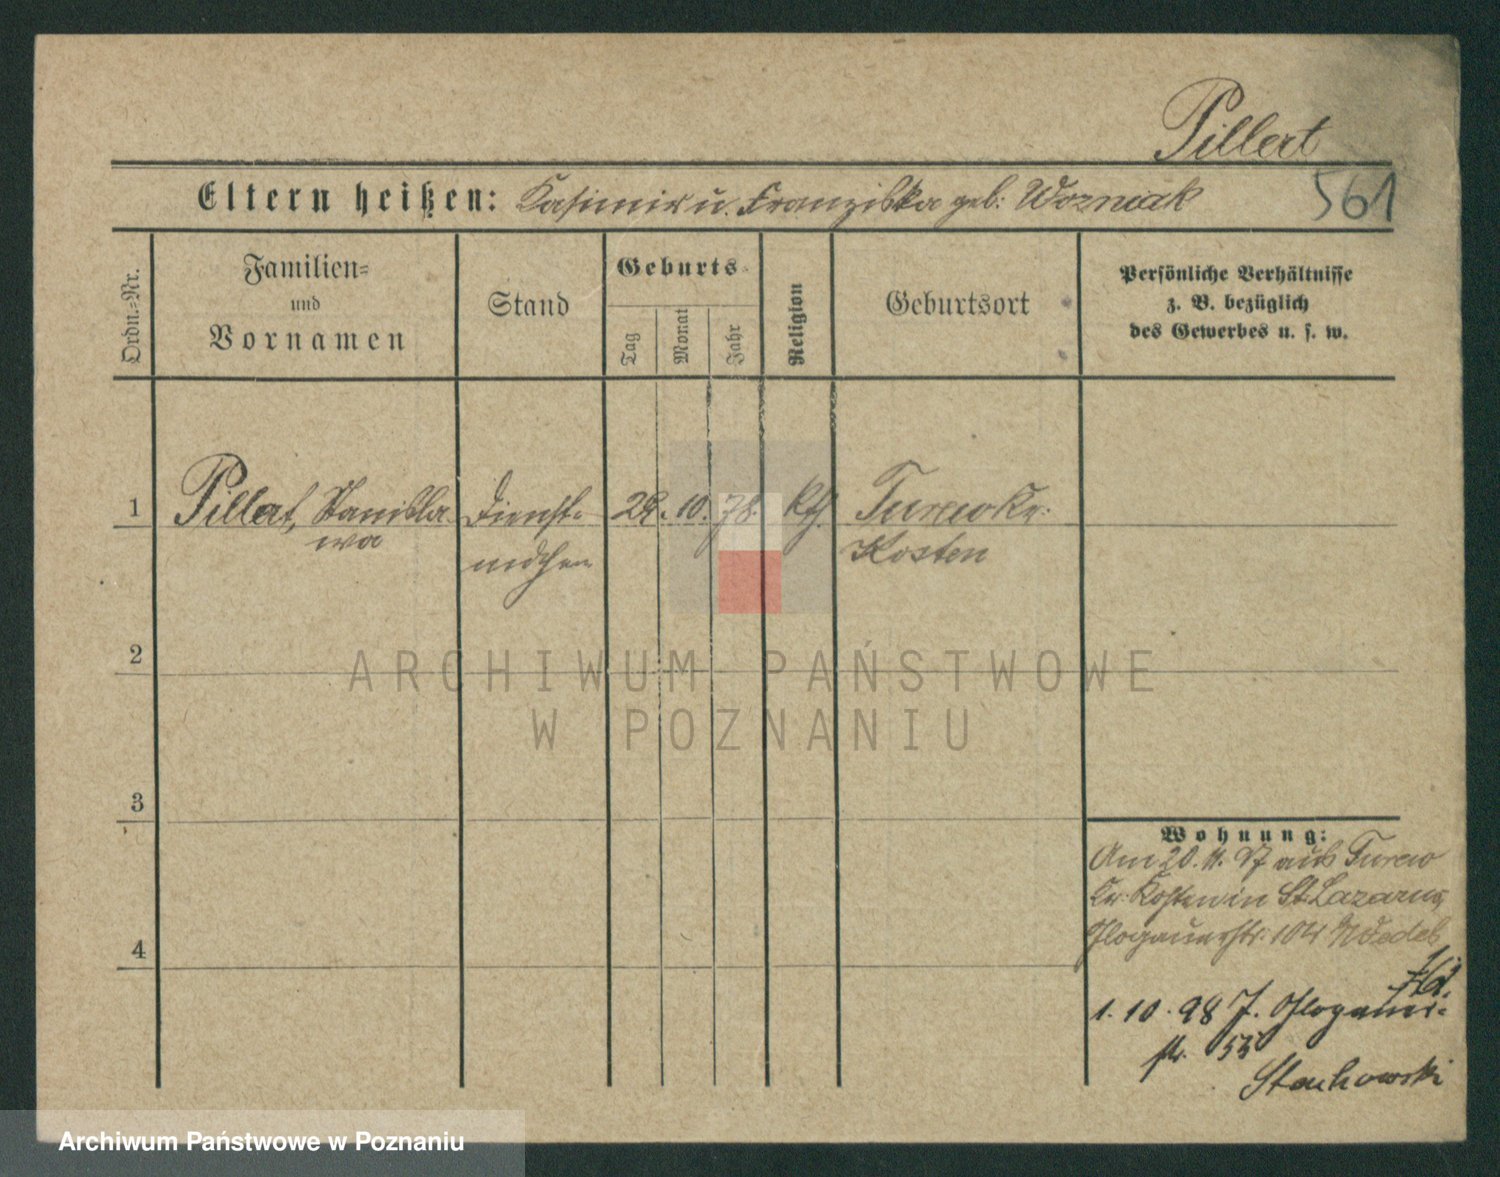 Pillert
Eltern heißen: Kasimir u. Franziska geb: Wozniak 561
Ordn.=Nr.
Familien=
und
Vornamen
Stand
Geburts=
Tag
Monat
Jahr
Religion
Geburtsort
Persönliche Verhältnisse
z. B. bezüglich
des Gewerbes u. s. w.
1 Pillat, Stanisla
wa
Dienst=
mdchen
29. 10. 78. Kth. Turew Kr:
Kosten
2
ARCHIWUM PAŃSTWOWE
W POZNANIU
3
4
Wohnung:
Am 20. 11. 97 aus Turew
Kr: Kosten in St. Lazarus,
Glogauerstr. 104
1. 10. 98 J. Glogauer=
str. 53
Stachowski
Archiwum Państwowe w Poznaniu